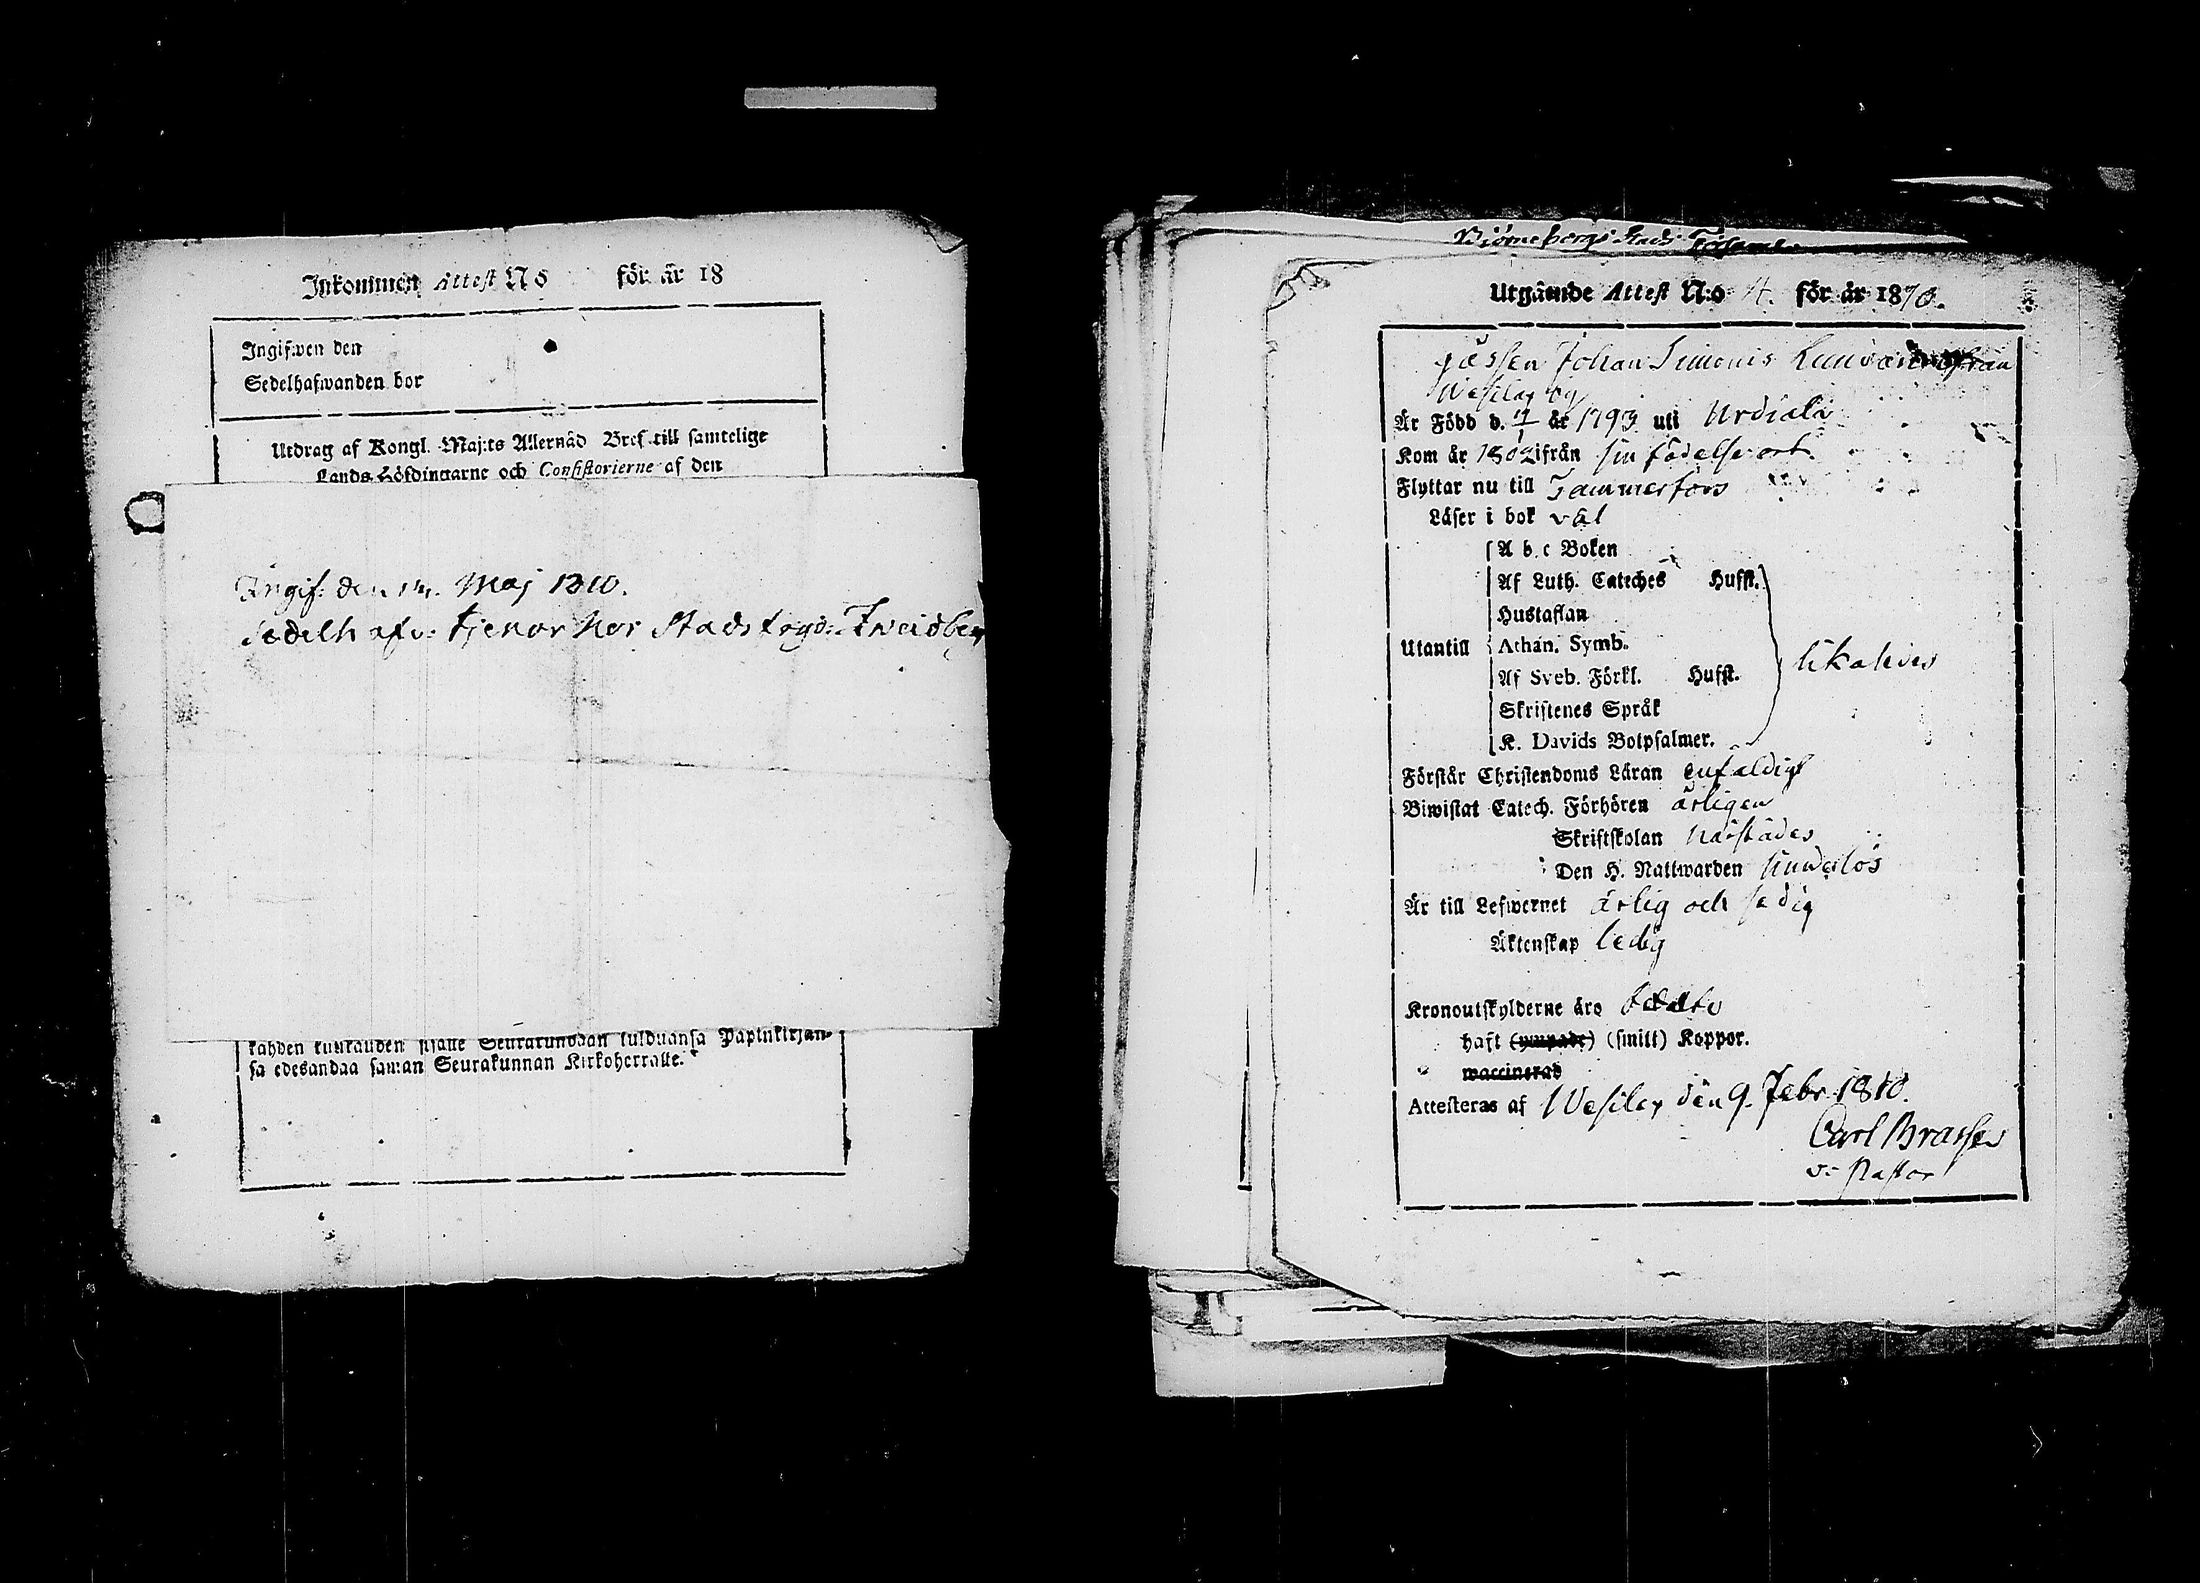 Inkommen Attest No för år 18
Ingifwen den
Sedelhafwanden bor
Utdrag af Kongl. Maj:ts Allernåd Bref till samtelige
Lands Höfdingarne och Consistorierne af den
Ingif: den 14. Maj 1810.
Sedelhafv: tjenar hos Stadsfogd: Zweidberg
kahden kuukauden sisälle Seurakundaan tulduansa Papinkirjan-
sa edesandaa saman Seurakunnan Kirkoherralle.
Björneborgs Stads Församl.
Utgående Attest N:o 4. för år 1810.
gossen Johan Simonis från
Wesilax by
Är Född d. 17/1 år 1793 uti Urdiala
Kom år 1802 ifrån sin födelse ort
Flyttar nu till Tammerfors
Läser i bok väl
A b c Boken
Af Luth. Cateches Hufst.
Hustaflan
Utantill Athan. Symb. likaledes
Af Sveb. Förkl. Hufst.
Skriftenes Språk
K. Davids Botpsalmer.
Förstår Christendoms Läran enfaldigt
Biwistat Catech. Förhören årligen
Skriftskolan härstädes
Den H. Nattwarden hinderlös
Är till Lefwernet ärlig och sedig
Äktenskap ledig
Kronoutskylderne äro
haft (ympade) (smitt) Koppor.
waccinerad
Attesteras af Wesilax den 9. Febr 1810.
Carl Brasse
v: Pastor